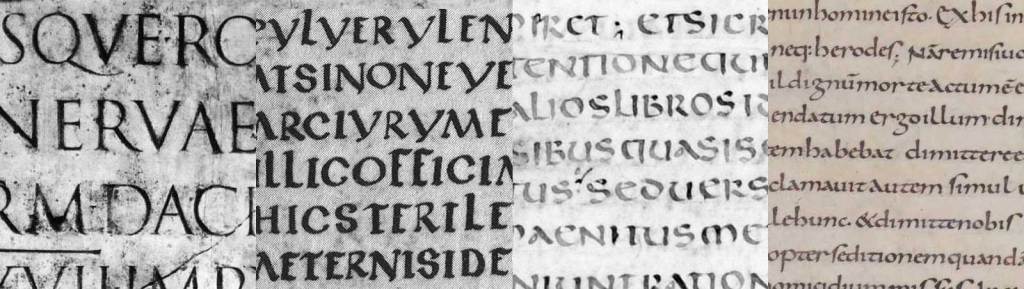 SQVE·RO
NERVAE
RM·DACI
PVLVERVLEN
ATSINONFVE
ARCTVRVMT
ILLICOFFICIA
HICSTERILE
ALTERNISIDE
ETSICR
TENTIONEQUI
ALIOSLIBROSI
SIBUSQUASISS
TUS; SEDUERS
PAENITUSME
NIUNTRATION
nunhomineisto. Exhisin
neq:herodes; Nāremisiuo
ildignūmorteactumēe
endatum ergoillumdim
emhabebat dimitteree
clamauit autem simul u
lehunc. &dimittenobis
opterseditionemquandā